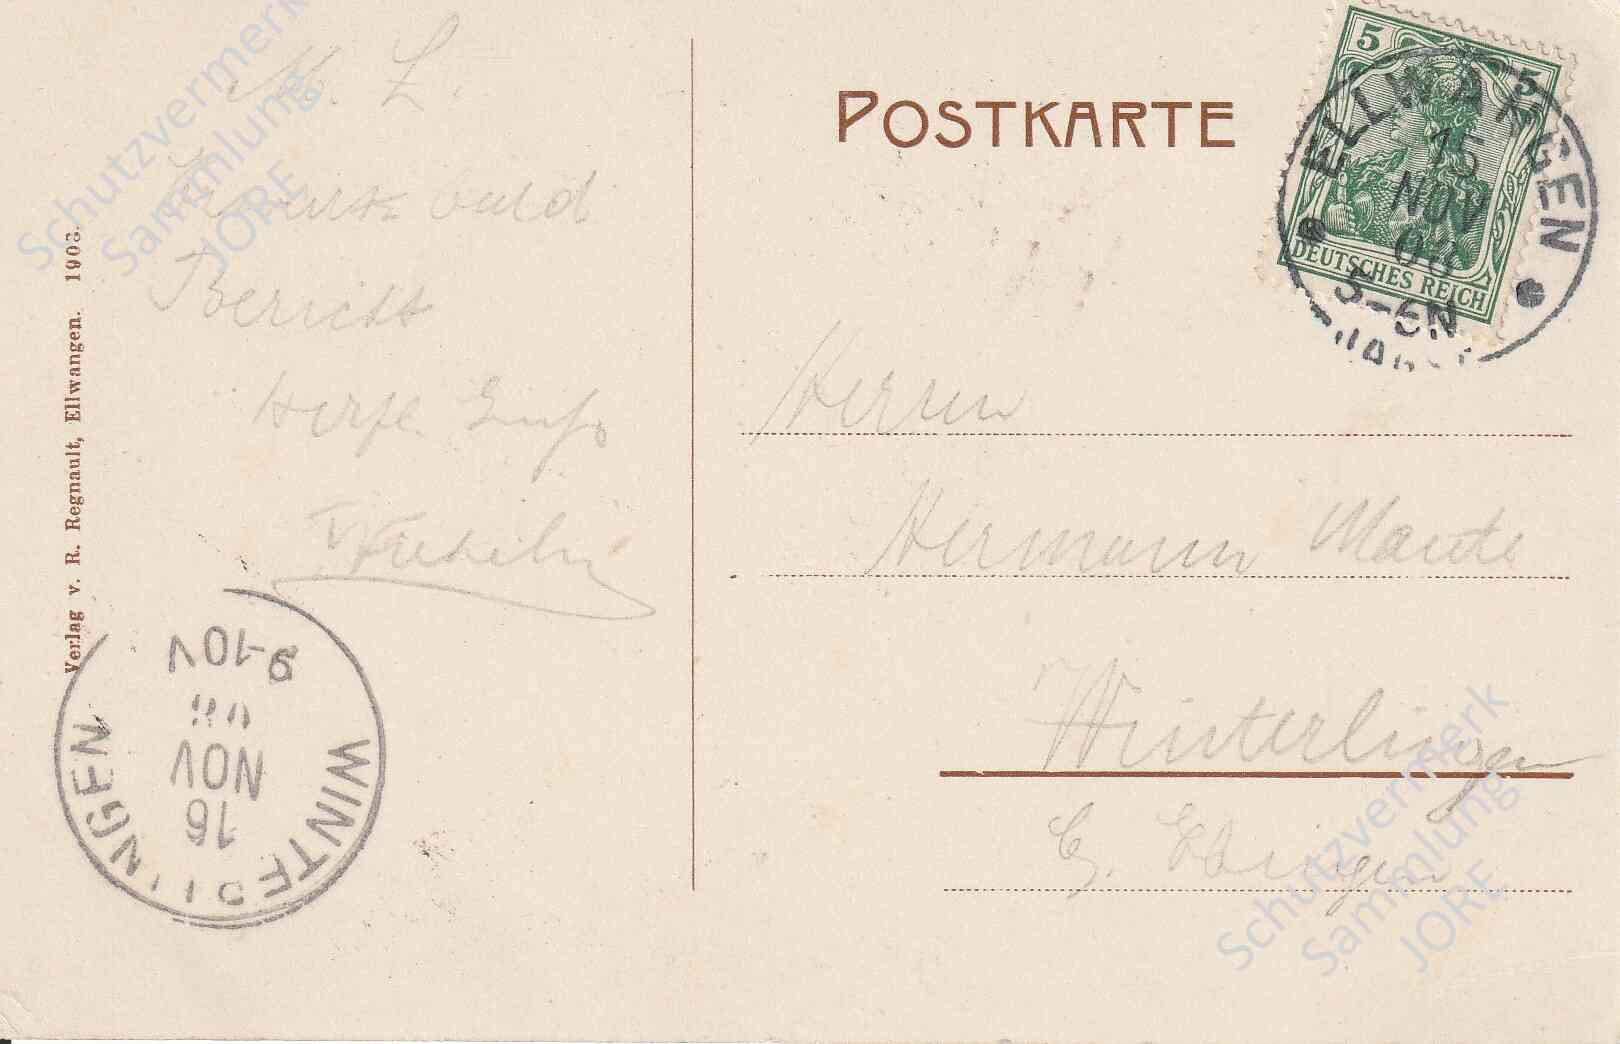 M. L.
bald
Bericht
Herzl. Gruß
Verlag v. R. Regnault, Ellwangen. 1908.
WINTERLINGEN
16
NOV
08
9-10V
POSTKARTE
5
5
DEUTSCHES REICH
ELLWANGEN
15
NOV
08
5-6N
Herrn
Hermann Maute
Winterlingen
b. Ebingen
Schutzvermerk
Sammlung
JORE
Schutzvermerk
Sammlung
JORE